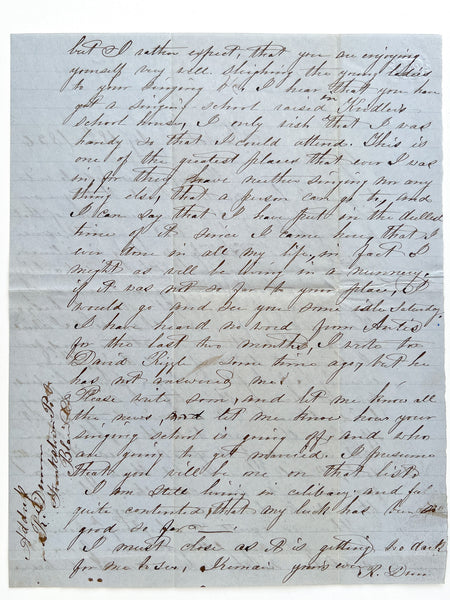 but I rather expect, that you are enjoying
yourself very well, sleighing the young ladies
to your singing &c. I hear that you have
got a singing school raised in
school house, I only wish that I was
handy so that I could attend. This is
one of the greatest places that ever I was
in, for they have neither singing nor any
thing else, that a person can go to, and
I can say that I have put in the dullest
time of it since I came here, that I
ever done in all my life, in fact I
might as well be living in a nunnery.
if it was not so far to your place, I
would go and see you some idle Saturday.
I have heard no word from Antis
for the last two months, I wrote to
David some time ago, but he
has not answered me.
Please write soon, and let me know all
the news, and let me know how your
singing school is going off, and who
are going to get married. I presume
that you will be one on that list.
I am still living in celibacy, and feel
quite contented that my luck has been so
good so far
I must close as it is getting so dark
for me to see, I remain yours ever
R.
Address
R.
P.O.
Blair Co